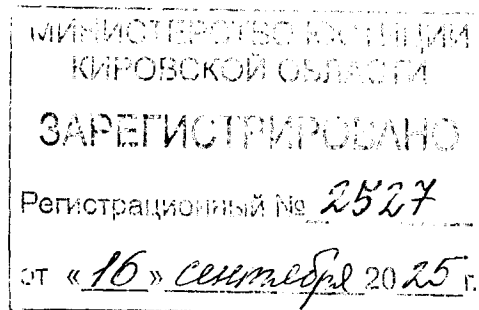 МИНИСТЕРСТВО ЮСТИЦИИ
КИРОВСКОЙ ОБЛАСТИ
ЗАРЕГИСТРИРОВАНО
Регистрационный № 2527
от «16» сентября 2025 г.